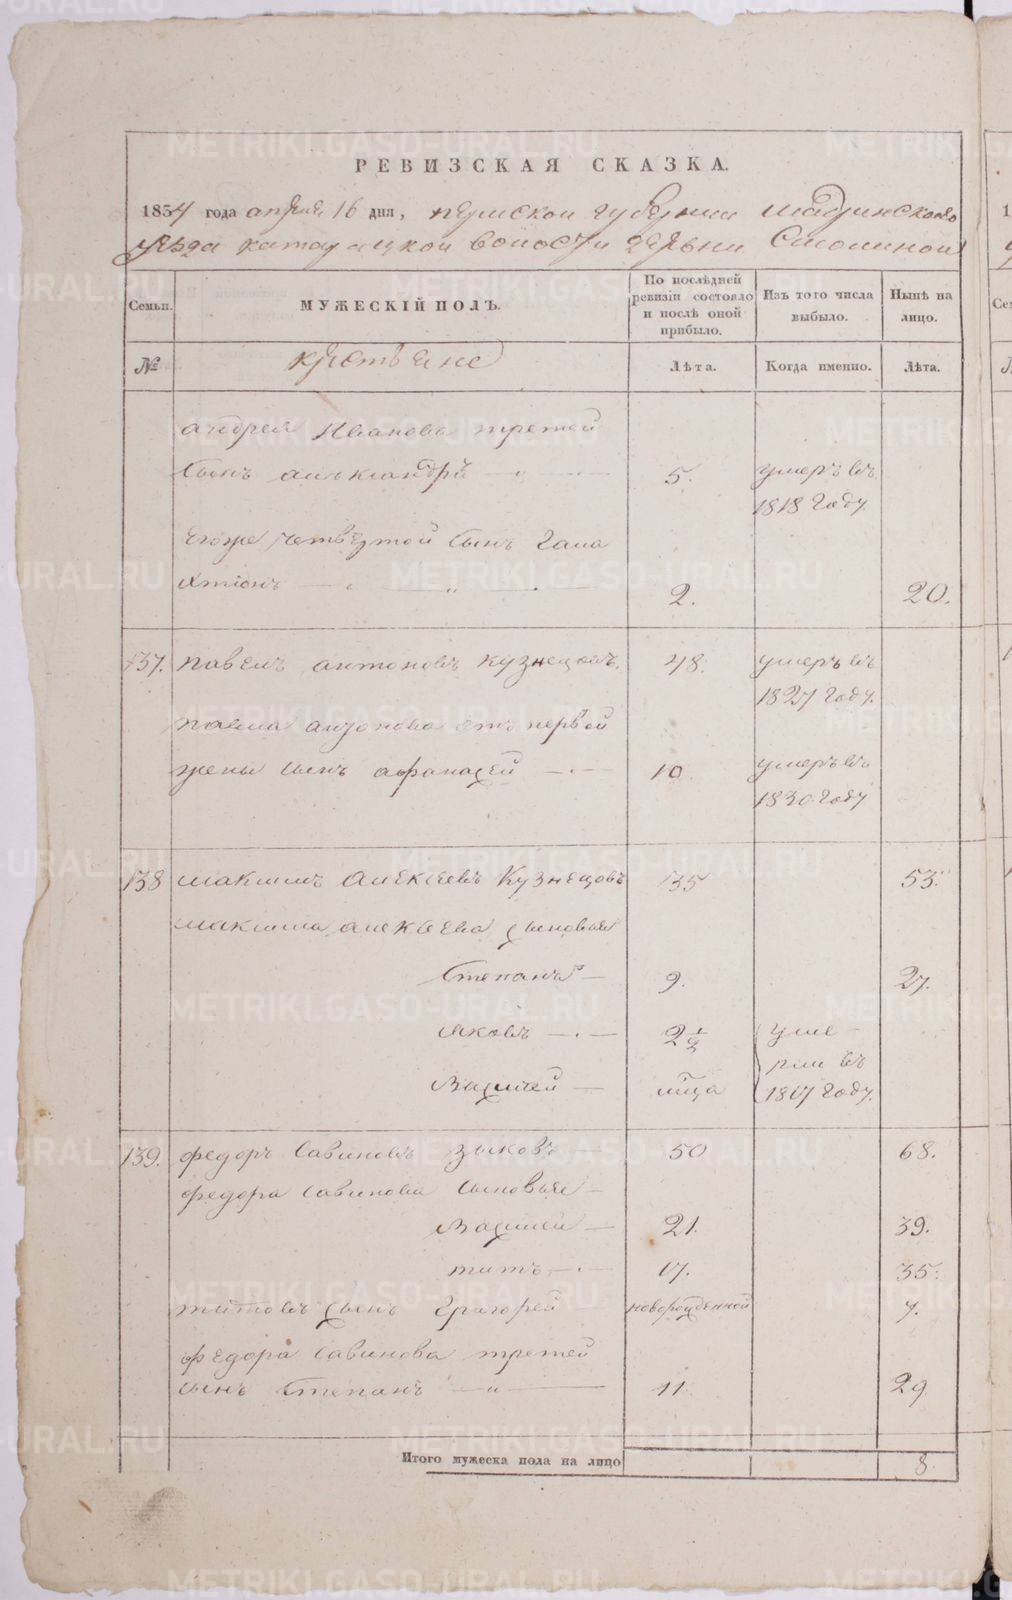 РЕВИЗСКАЯ СКАЗКА.
1834 года апреля 16 дня, пермской губернии шадринского
уезда катайцкой волости деревни
Семьи.
МУЖЕСКІЙ ПОЛЪ.
По послѣдней ревизіи состояло и послѣ оной прибыло.
Изъ того числа выбыло.
Нынѣ на лицо.
№
крестьяне
Лѣта.
Когда именно.
Лѣта.
андрея Иванова третей
сынъ александръ 5. умеръ въ
1818 году.
егоже четвертой сынъ гала
ктіонъ 2. 20.
137. павелъ антоновъ кузнецовъ. 48. умеръ въ
1827 году.
павла антонова отъ первой
жены сынъ афанасей 10. умеръ въ
1830 году
138 максимъ алексеевъ Кузнецовъ 35 53.
максима алексеева сыновья
Степанъ 9. 27.
яковъ 2½ уме-
рли въ
Василей 1817 году.
139. федоръ савиновъ зыковъ 50 68.
федора савинова сыновья
Василей 21. 39.
титъ 17. 35.
титовъ сынъ Григорей новорожденной 7.
федора савинова третей
сынъ Степанъ 11. 29.
Итого мужеска пола на лицо 8.
METRIKI.GASO-URAL.RU